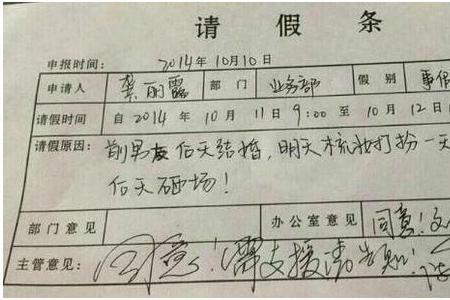 请假条
申报时间： 2014年10月10日
申请人 龚丽露 部门 业务部 假别 事假
请假时间： 自2014年10月11日9:00至10月12日
请假原因： 前男友后天结婚，明天梳妆打扮一天
后天砸场！
部门意见 办公室意见 同意！
主管意见： 同意！需支援请告知！